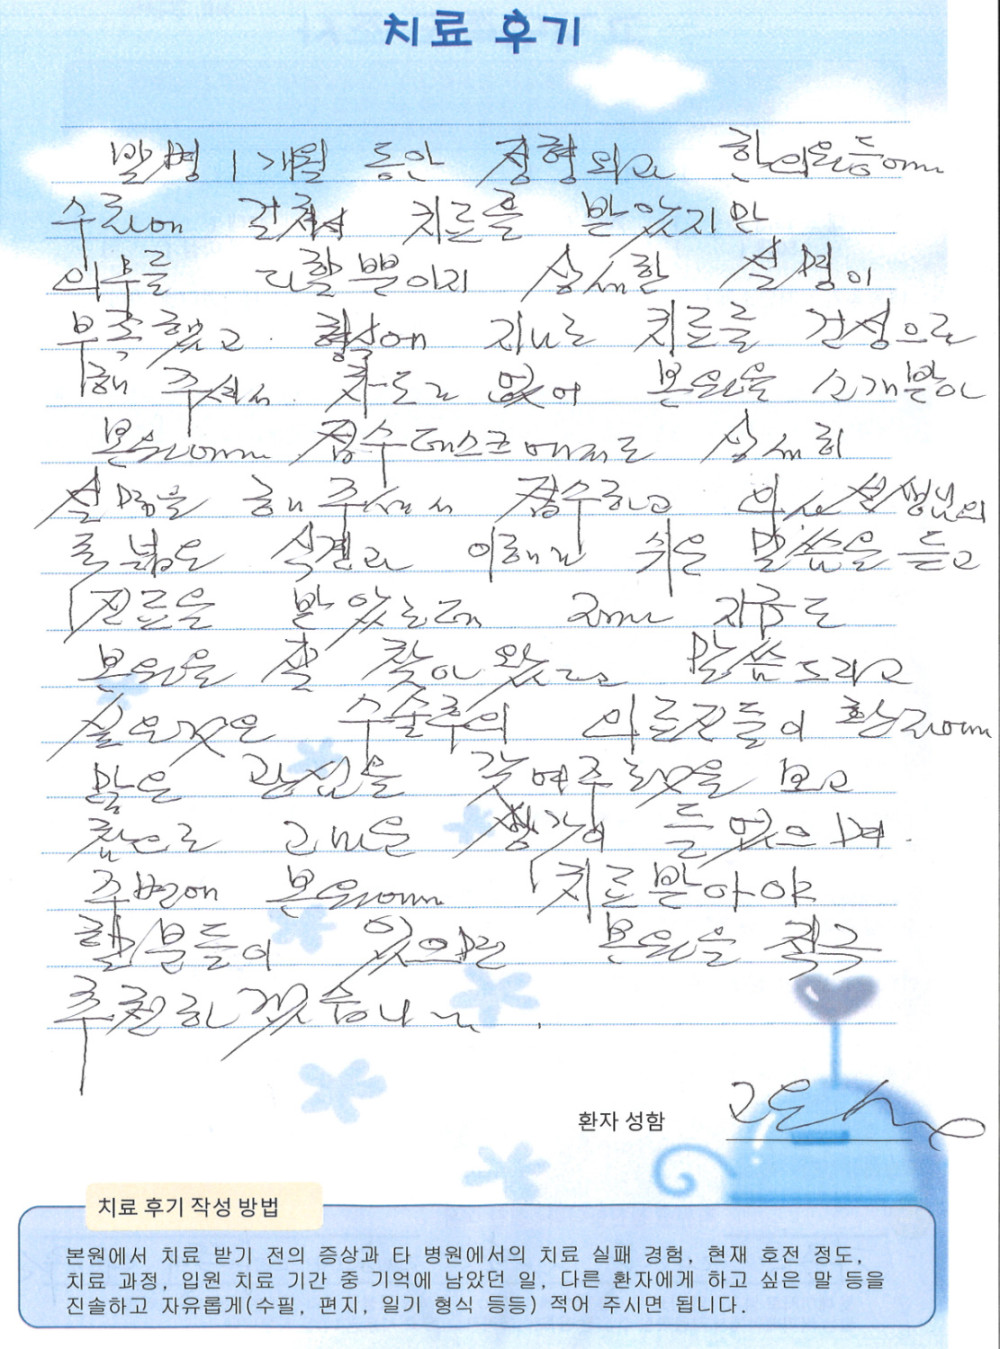 치료 후기
발병 1개월 동안 정형외과 한의원등에서
수곳에 걸쳐서 치료를 받았지만
의무를 다할뿐이지 상세한 설명이
부족했고. 형식에 지나로 치료를 건성으로
해 주셔서 차도가 없어 본원을 소개받아
본원에서 접수데스크에서부터 상세히
설명을 해주셔서 접수하고 의사선생님의
폭넓은 식견과 이해가 쉬운 말씀을 듣고
진료를 받았는데 지금도
본원을 잘 찾아왔다고 말씀드리고
싶은것은 수술후의 의료진들이 환자에게
많은 관심을 갖여주셨음을 보고
참으로 고마운 생각이 들었으며.
주변에 본원에서 치료받아야
할 분들이 있으면 본원을 적극
추천하겠습니다.
환자 성함
치료 후기 작성 방법
본원에서 치료 받기 전의 증상과 타 병원에서의 치료 실패 경험, 현재 호전 정도,
치료 과정, 입원 치료 기간 중 기억에 남았던 일, 다른 환자에게 하고 싶은 말 등을
진솔하고 자유롭게(수필, 편지, 일기 형식 등등) 적어 주시면 됩니다.